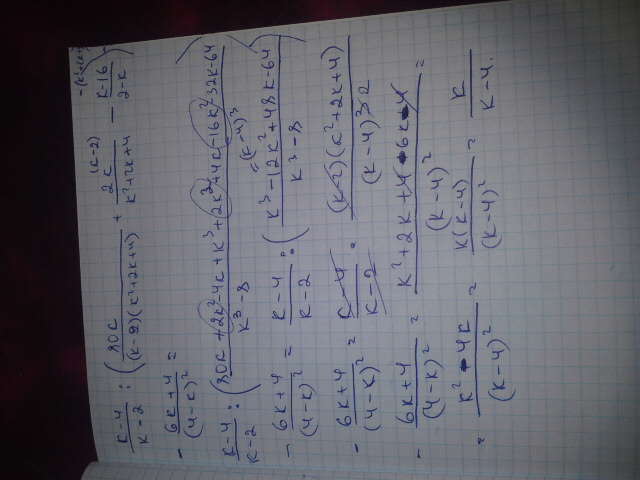 (k-4)/(k-2) : ( 80k/((k-2)(k²+2k+4)) + 2k/(k²+2k+4) (k-2) - (k-16)/(2-k) )
- (6k+4)/(4-k)² =
(k-4)/(k-2) : ( (80k+2k²-4k+k³+2k²+4k-16k²-32k-64)/(k³-8) )
- (6k+4)/(4-k)² = (k-4)/(k-2) : ( (k³-12k²+48k-64)/(k³-8) =(k-4)³
- (6k+4)/(4-k)² = (k-4)/(k-2) · ((k-2)(k²+2k+4))/(k-4)³
- (6k+4)/(4-k)² = (k²+2k+4-6k-4)/(k-4)² =
= (k²-4k)/(k-4)² = k(k-4)/(k-4)² = k/(k-4).